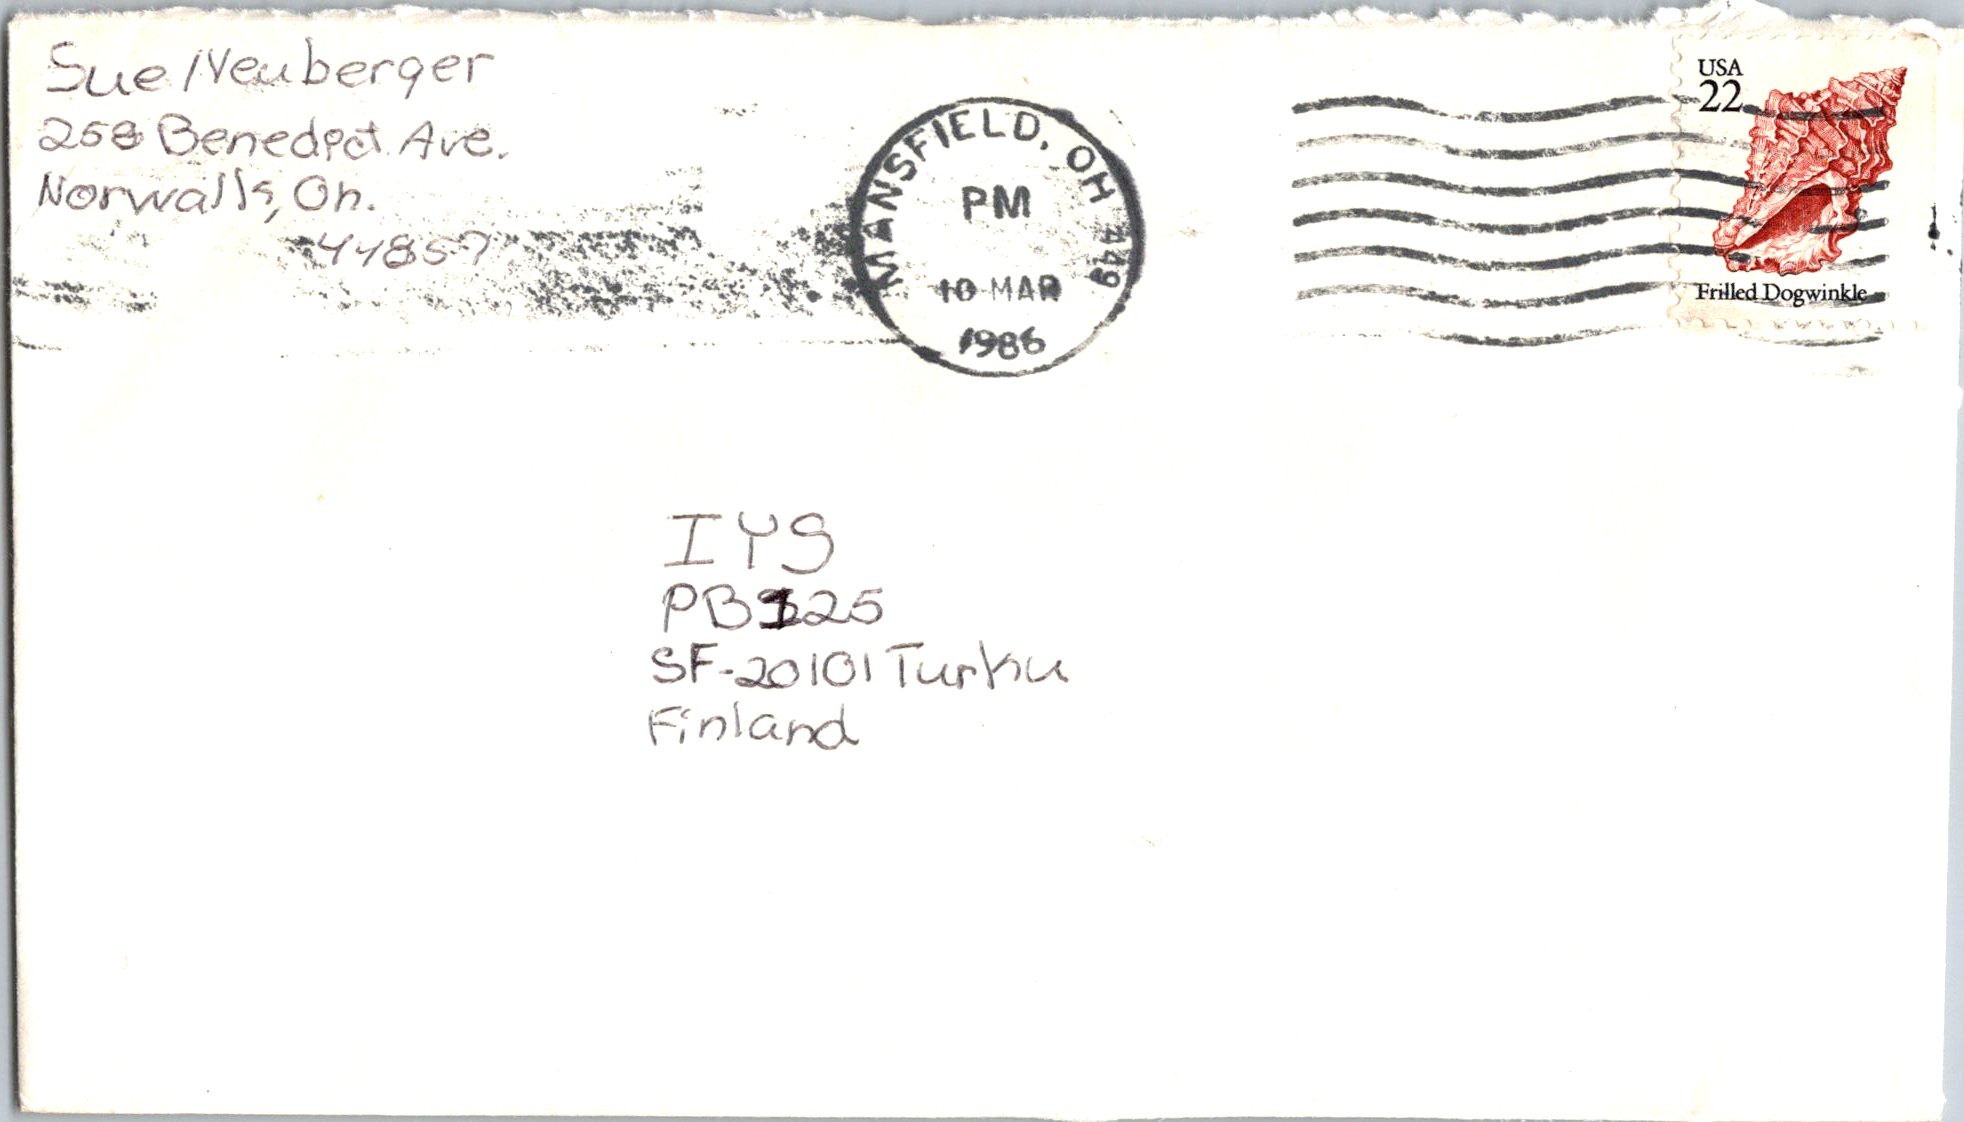 Sue Neuberger
258 Benedict Ave.
Norwalk, Oh.
44857
MANSFIELD, OH 449
PM
10 MAR
1986
USA
22
Frilled Dogwinkle
IYS
PB 125
SF-20101 Turku
Finland